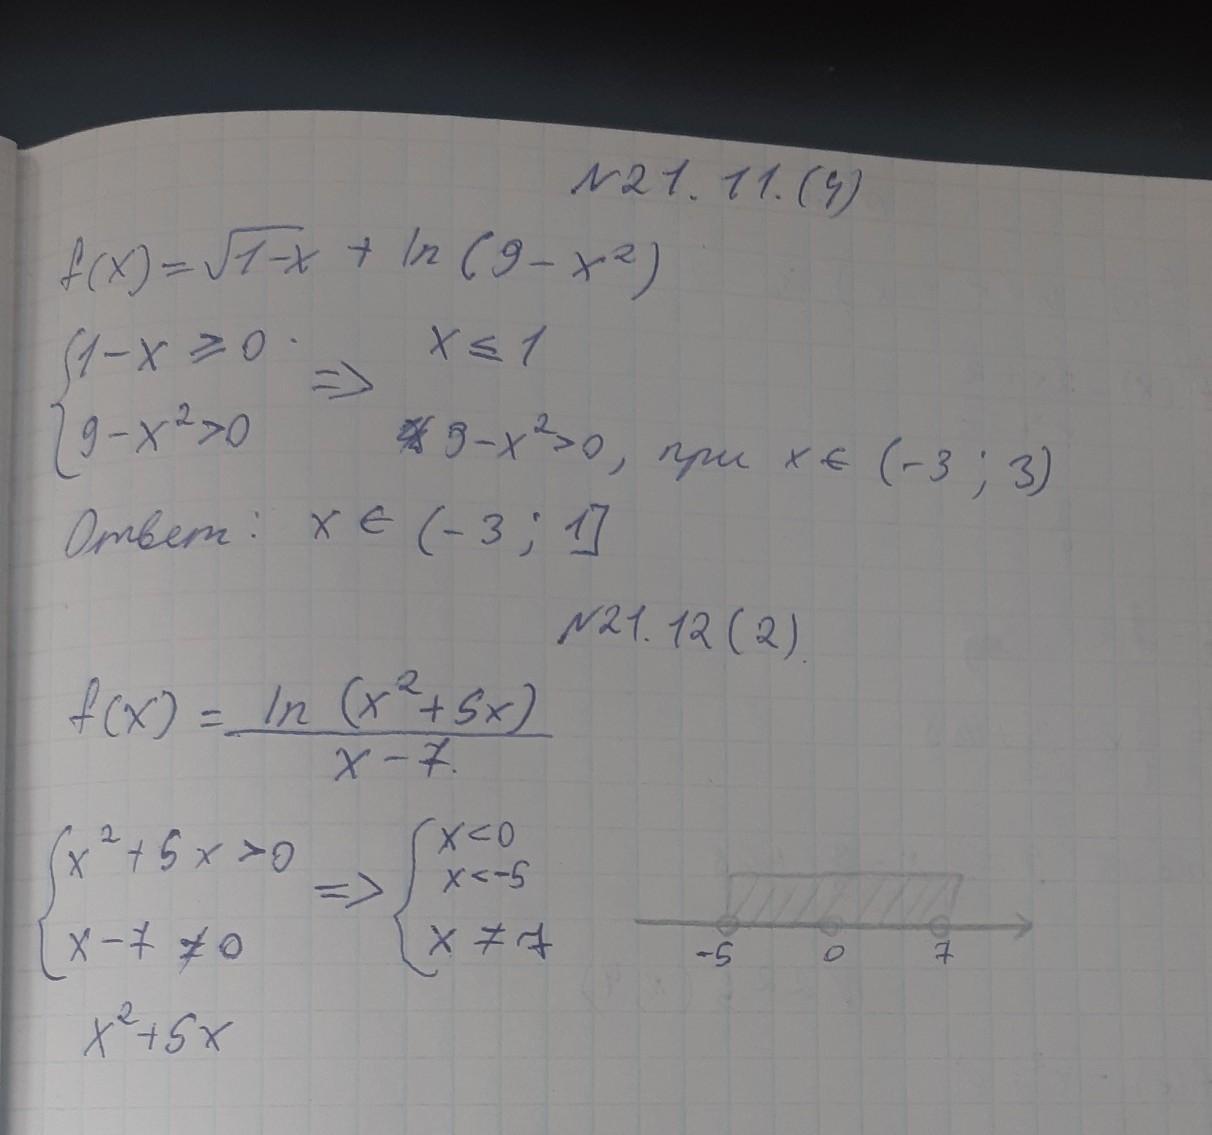 №21.11.(4)
f(x)=√1-x + ln(9-x²)
{1-x ≥ 0 => x ≤ 1
{9-x²>0 9-x²>0, при x ∈ (-3; 3)
Ответ: x ∈ (-3; 1]
№21.12(2)
f(x) = ln (x²+5x)
x-7
{x²+5x>0 => {x<0
x<-5
x-7≠0 x≠7
-5 0 7
x²+5x